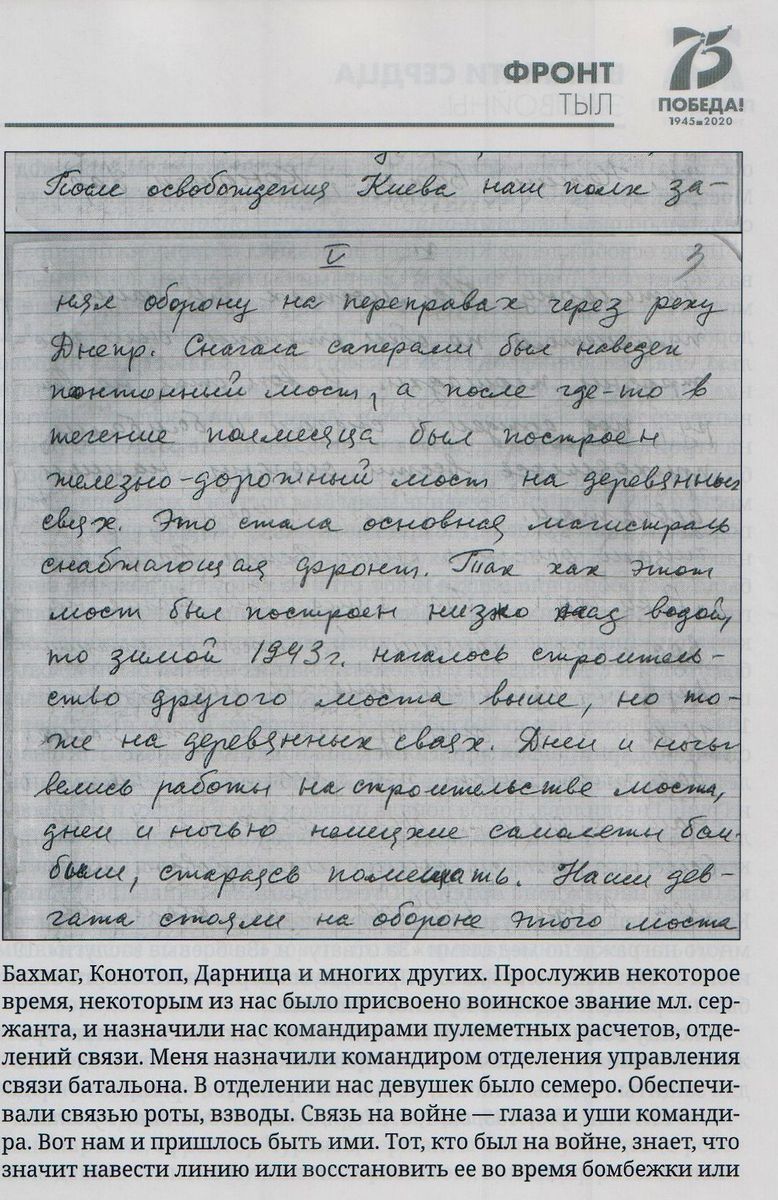 ФРОНТ
ТЫЛ
75
ПОБЕДА!
1945-2020
После освобождения Киева наш полк за-
V 3
нял оборону на переправах через реку
Днепр. Сначала саперами был наведен
понтонный мост, а после где-то в
течение полмесяца был построен
железно-дорожный мост на деревянных
сваях. Это стала основная магистраль
снабжающая фронт. Так как этот
мост был построен низко над водой,
то зимой 1943 г. началось строитель-
ство другого моста выше, но то-
же на деревянных сваях. Днем и ночью
велись работы на строительстве моста,
днем и ночью немецкие самолеты бом-
били, стараясь помешать. Наши дев-
чата стояли на обороне этого моста
Бахмаг, Конотоп, Дарница и многих других. Прослужив некоторое
время, некоторым из нас было присвоено воинское звание мл. сер-
жанта, и назначили нас командирами пулеметных расчетов, отде-
лений связи. Меня назначили командиром отделения управления
связи батальона. В отделении нас девушек было семеро. Обеспечи-
вали связью роты, взводы. Связь на войне — глаза и уши команди-
ра. Вот нам и пришлось быть ими. Тот, кто был на войне, знает, что
значит навести линию или восстановить ее во время бомбежки или